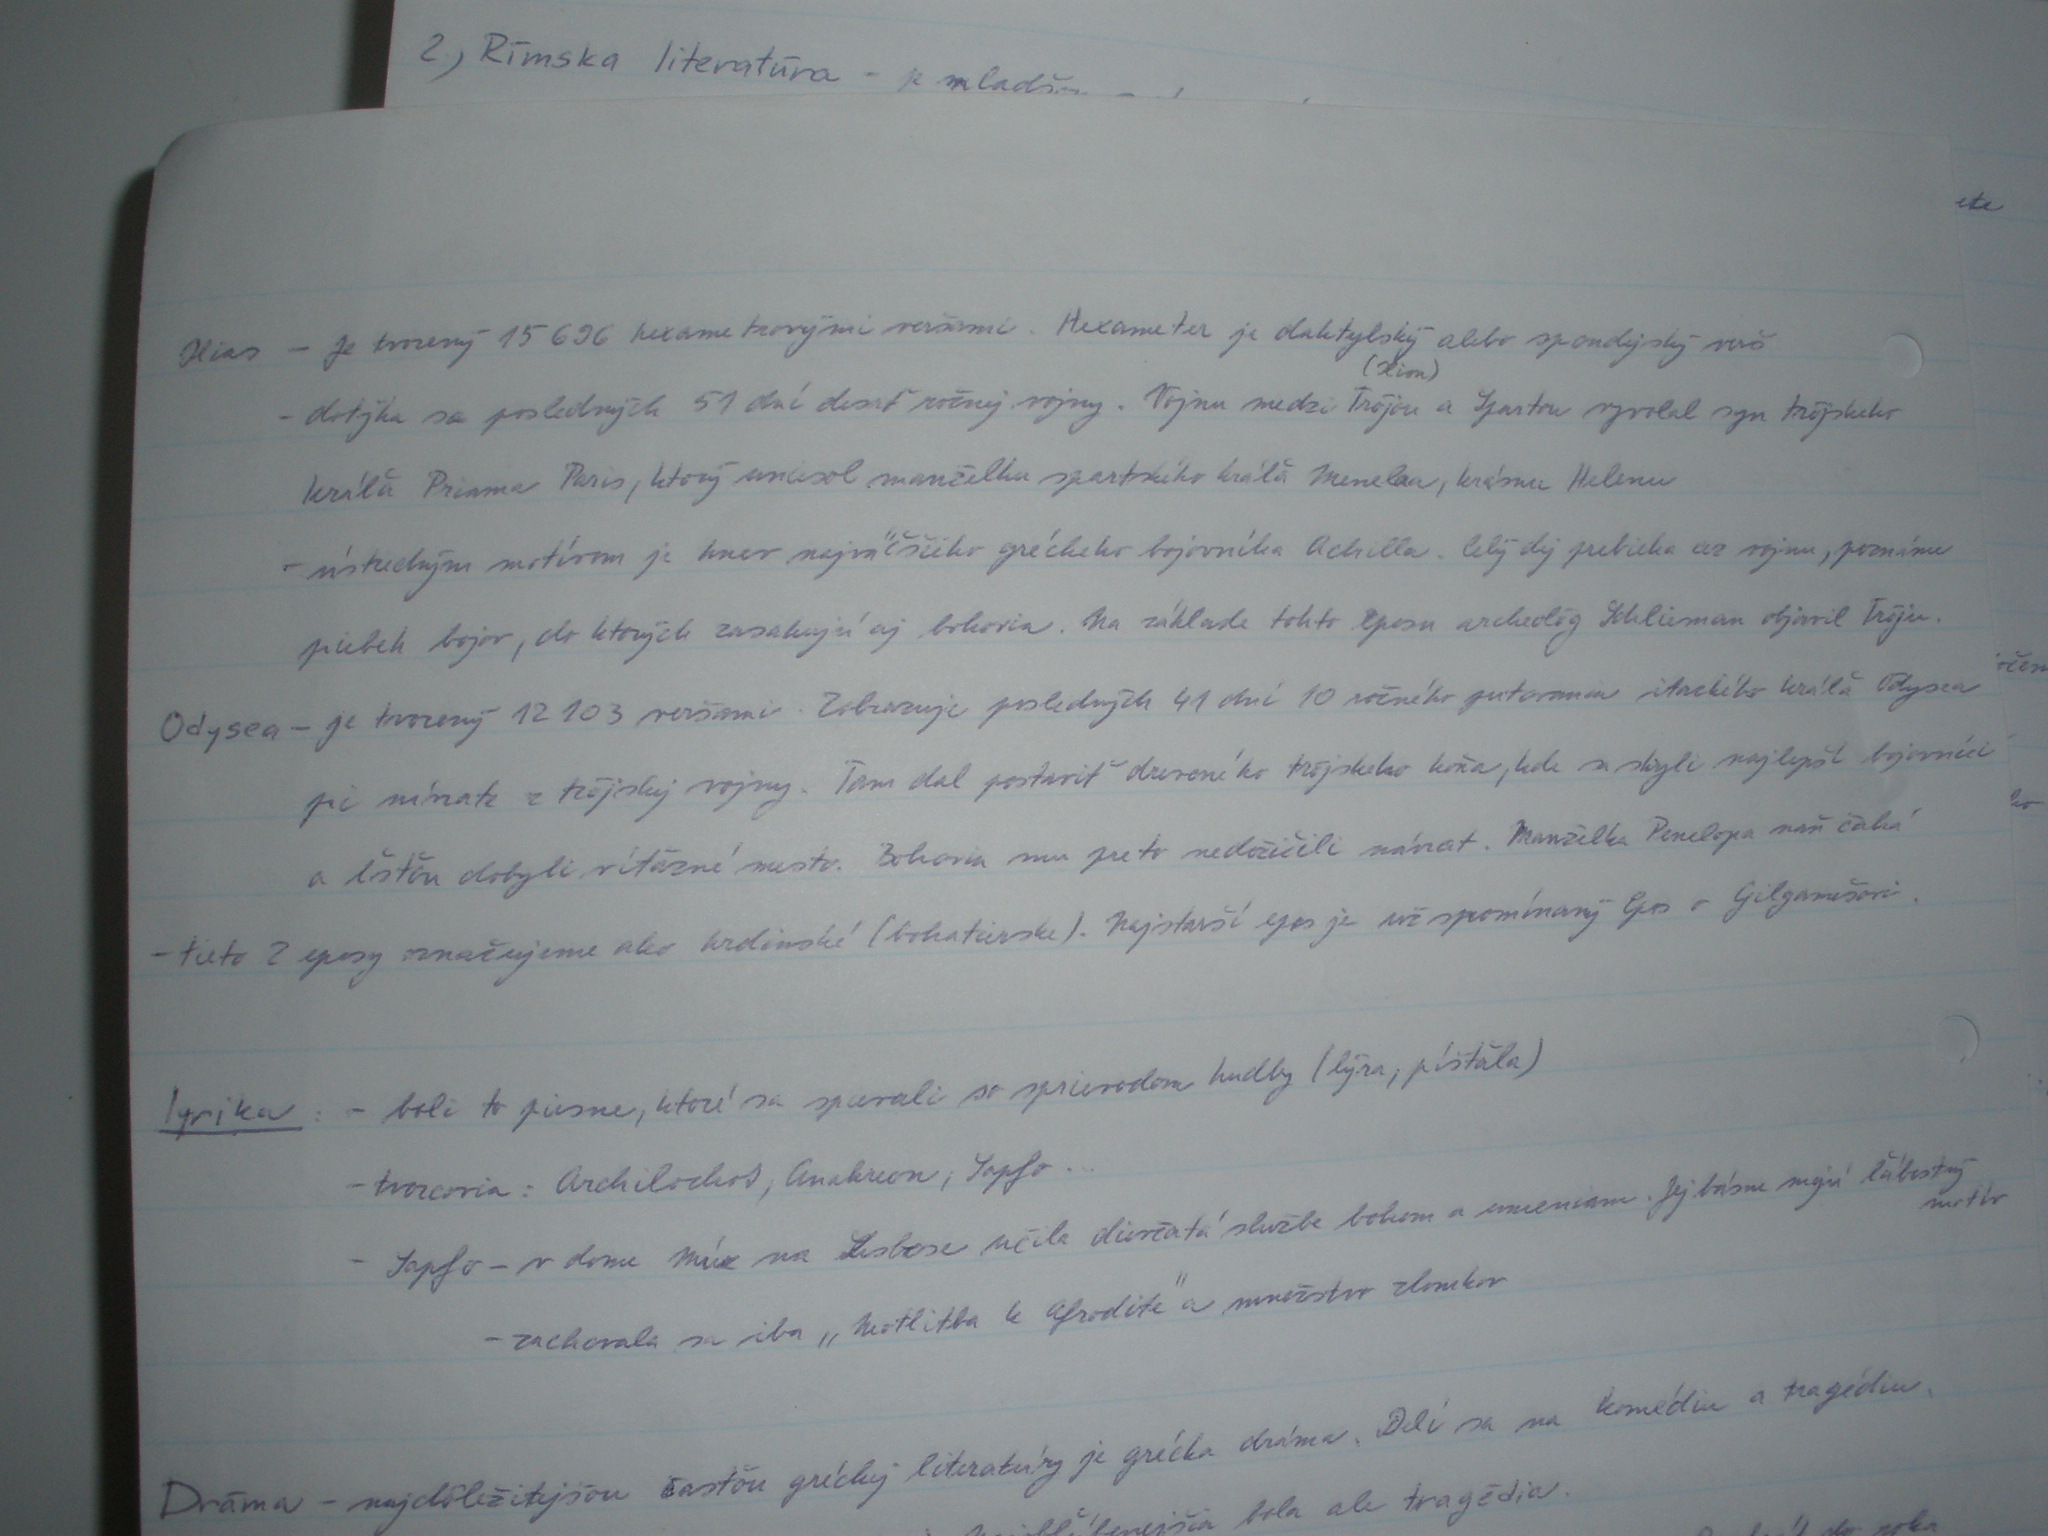 2., Rímska literatúra - je mladšia
Ilias - je tvorený 15 696 hexametrovými veršami. Hexameter je daktylský alebo spondejský verš
(Ilion)
- dotýka sa posledných 51 dní desať ročnej vojny. Vojnu medzi Trójou a Spartou vyvolal syn trójskeho
kráľa Priama Paris, ktorý uniesol manželku spartského kráľa Menelaa, krásnu Helenu
- ústredným motívom je hnev najväčšieho gréckeho bojovníka Achilla. Celý dej prebieka cez vojnu, poznáme
priebeh bojov, do ktorých zasahujú aj bohovia. Na základe tohto eposu archeológ Schlieman objavil Tróju.
Odysea - je tvorený 12 103 veršami. Zobrazuje posledných 41 dní 10 ročného putovania itackého kráľa Odysea
pri návrate z trójskej vojny. Tam dal postaviť dreveného trójskeho koňa, kde sa skryli najlepší bojovníci
a lsťou dobyli víťazné mesto. Bohovia mu preto nedožičili návrat. Manželka Penelopa naň čaká
- tieto 2 eposy označujeme ako hrdinské (bohatierske). Najstarší epos je už spomínaný Epos o Gilgamešovi.
lyrika : - boli to piesne, ktoré sa spievali so sprievodom hudby (lýra, píšťala)
- tvorcovia : Archilochos, Anakreon, Sapfo ...
- Sapfo - v dome Múz na Lesbose učila dievčatá službe bohom a umeniam. Jej básne majú ľúbostný
motív
- zachovala sa iba „Motlitba k Afrodite" a množstvo zlomkov
Dráma - najdôležitejšou časťou gréckej literatúry je grécka dráma. Delí sa na komédiu a tragédiu.
bola ale tragédia.